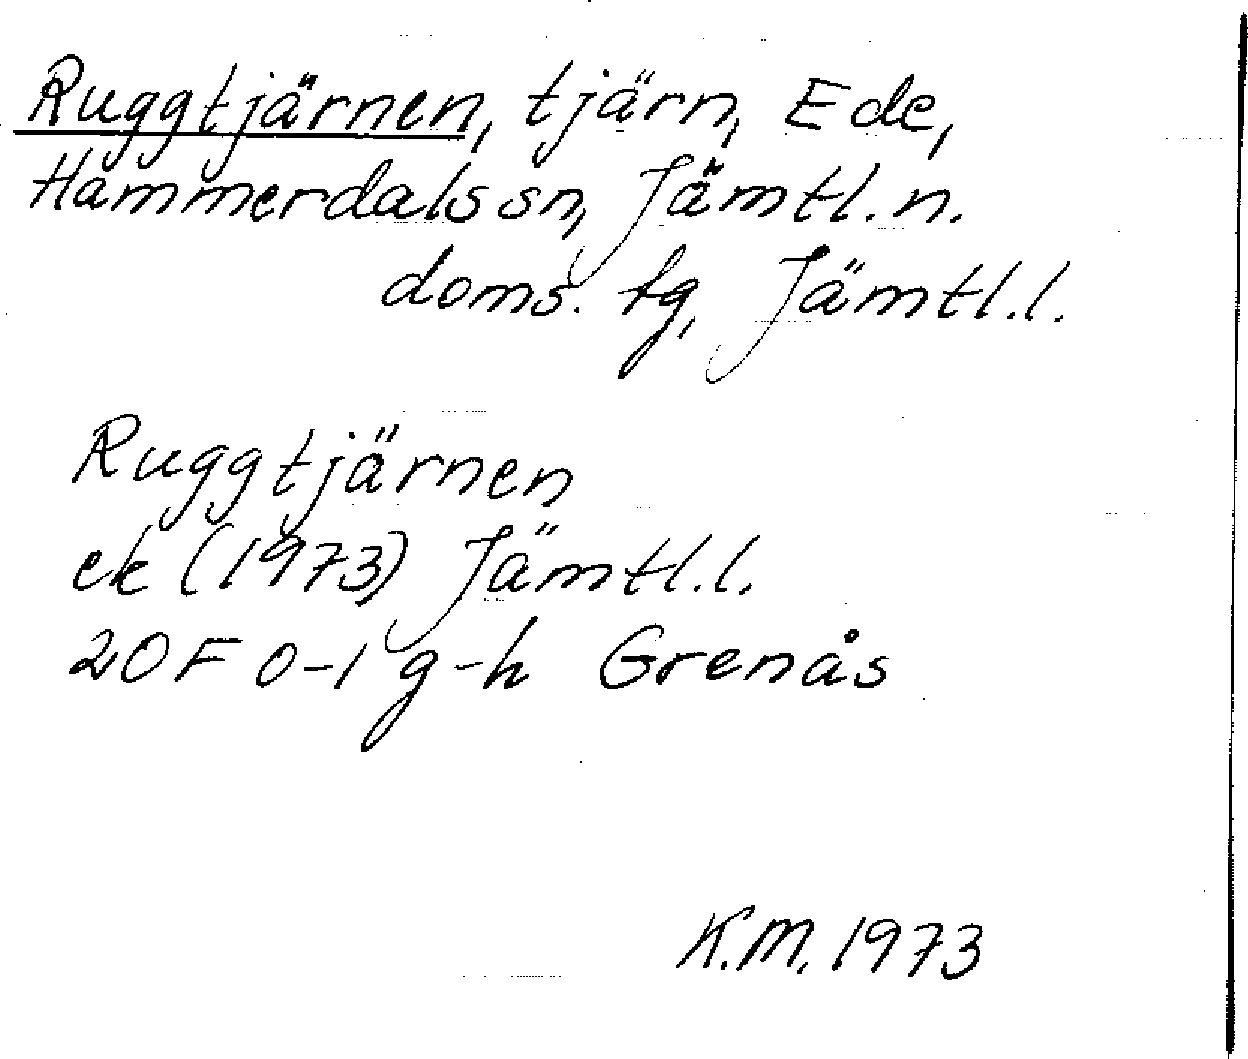 Ruggtjärnen, tjärn, Ede,
Hammerdals sn, Jämtl. n.
doms. tg, Jämtl. l.
Ruggtjärnen
ek (1973) Jämtl. l.
20F 0-1 g-h Grenås
K.M. 1973